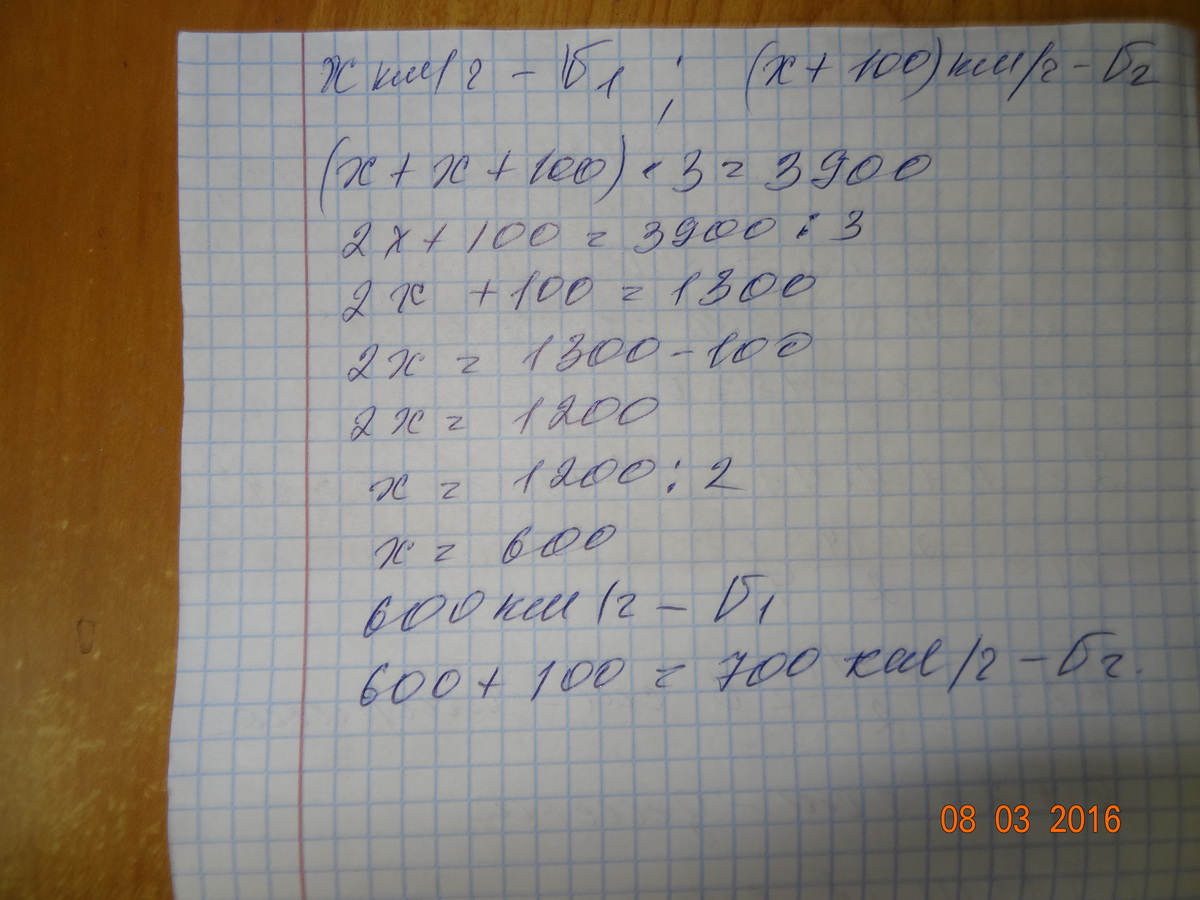 x км/г - Б1 ; (x + 100) км/г - Б2
(x + x + 100) · 3 = 3900
2x + 100 = 3900 : 3
2x + 100 = 1300
2x = 1300 - 100
2x = 1200
x = 1200 : 2
x = 600
600 км/г - Б1
600 + 100 = 700 км/г - Б2.
08 03 2016